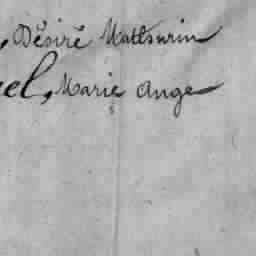 , Désiré Mathurin
el, Marie Ange